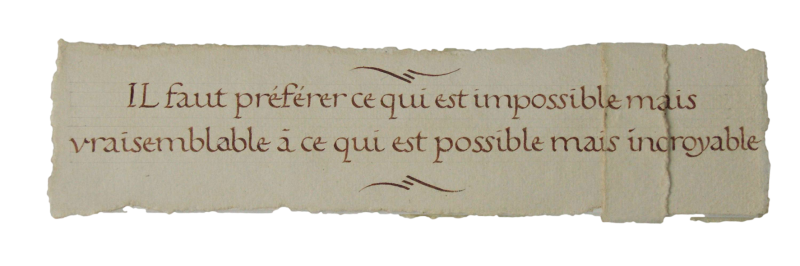 IL faut préférer ce qui est impossible mais
vraisemblable à ce qui est possible mais incroyable